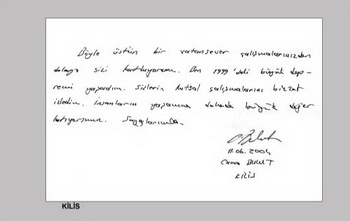 Böyle üstün bir vatansever çalışmalarınızdan
dolayı sizi kutluyorum. Ben 1999'daki büyük dep-
remi yaşadım. Sizlerin kutsal çalışmalarını bizzat
izledim. İnsanların yaşamına daha da büyük değer
katıyorsunuz. Saygılarımla.
11.06.2004
BULUT
KİLİS
KİLİS